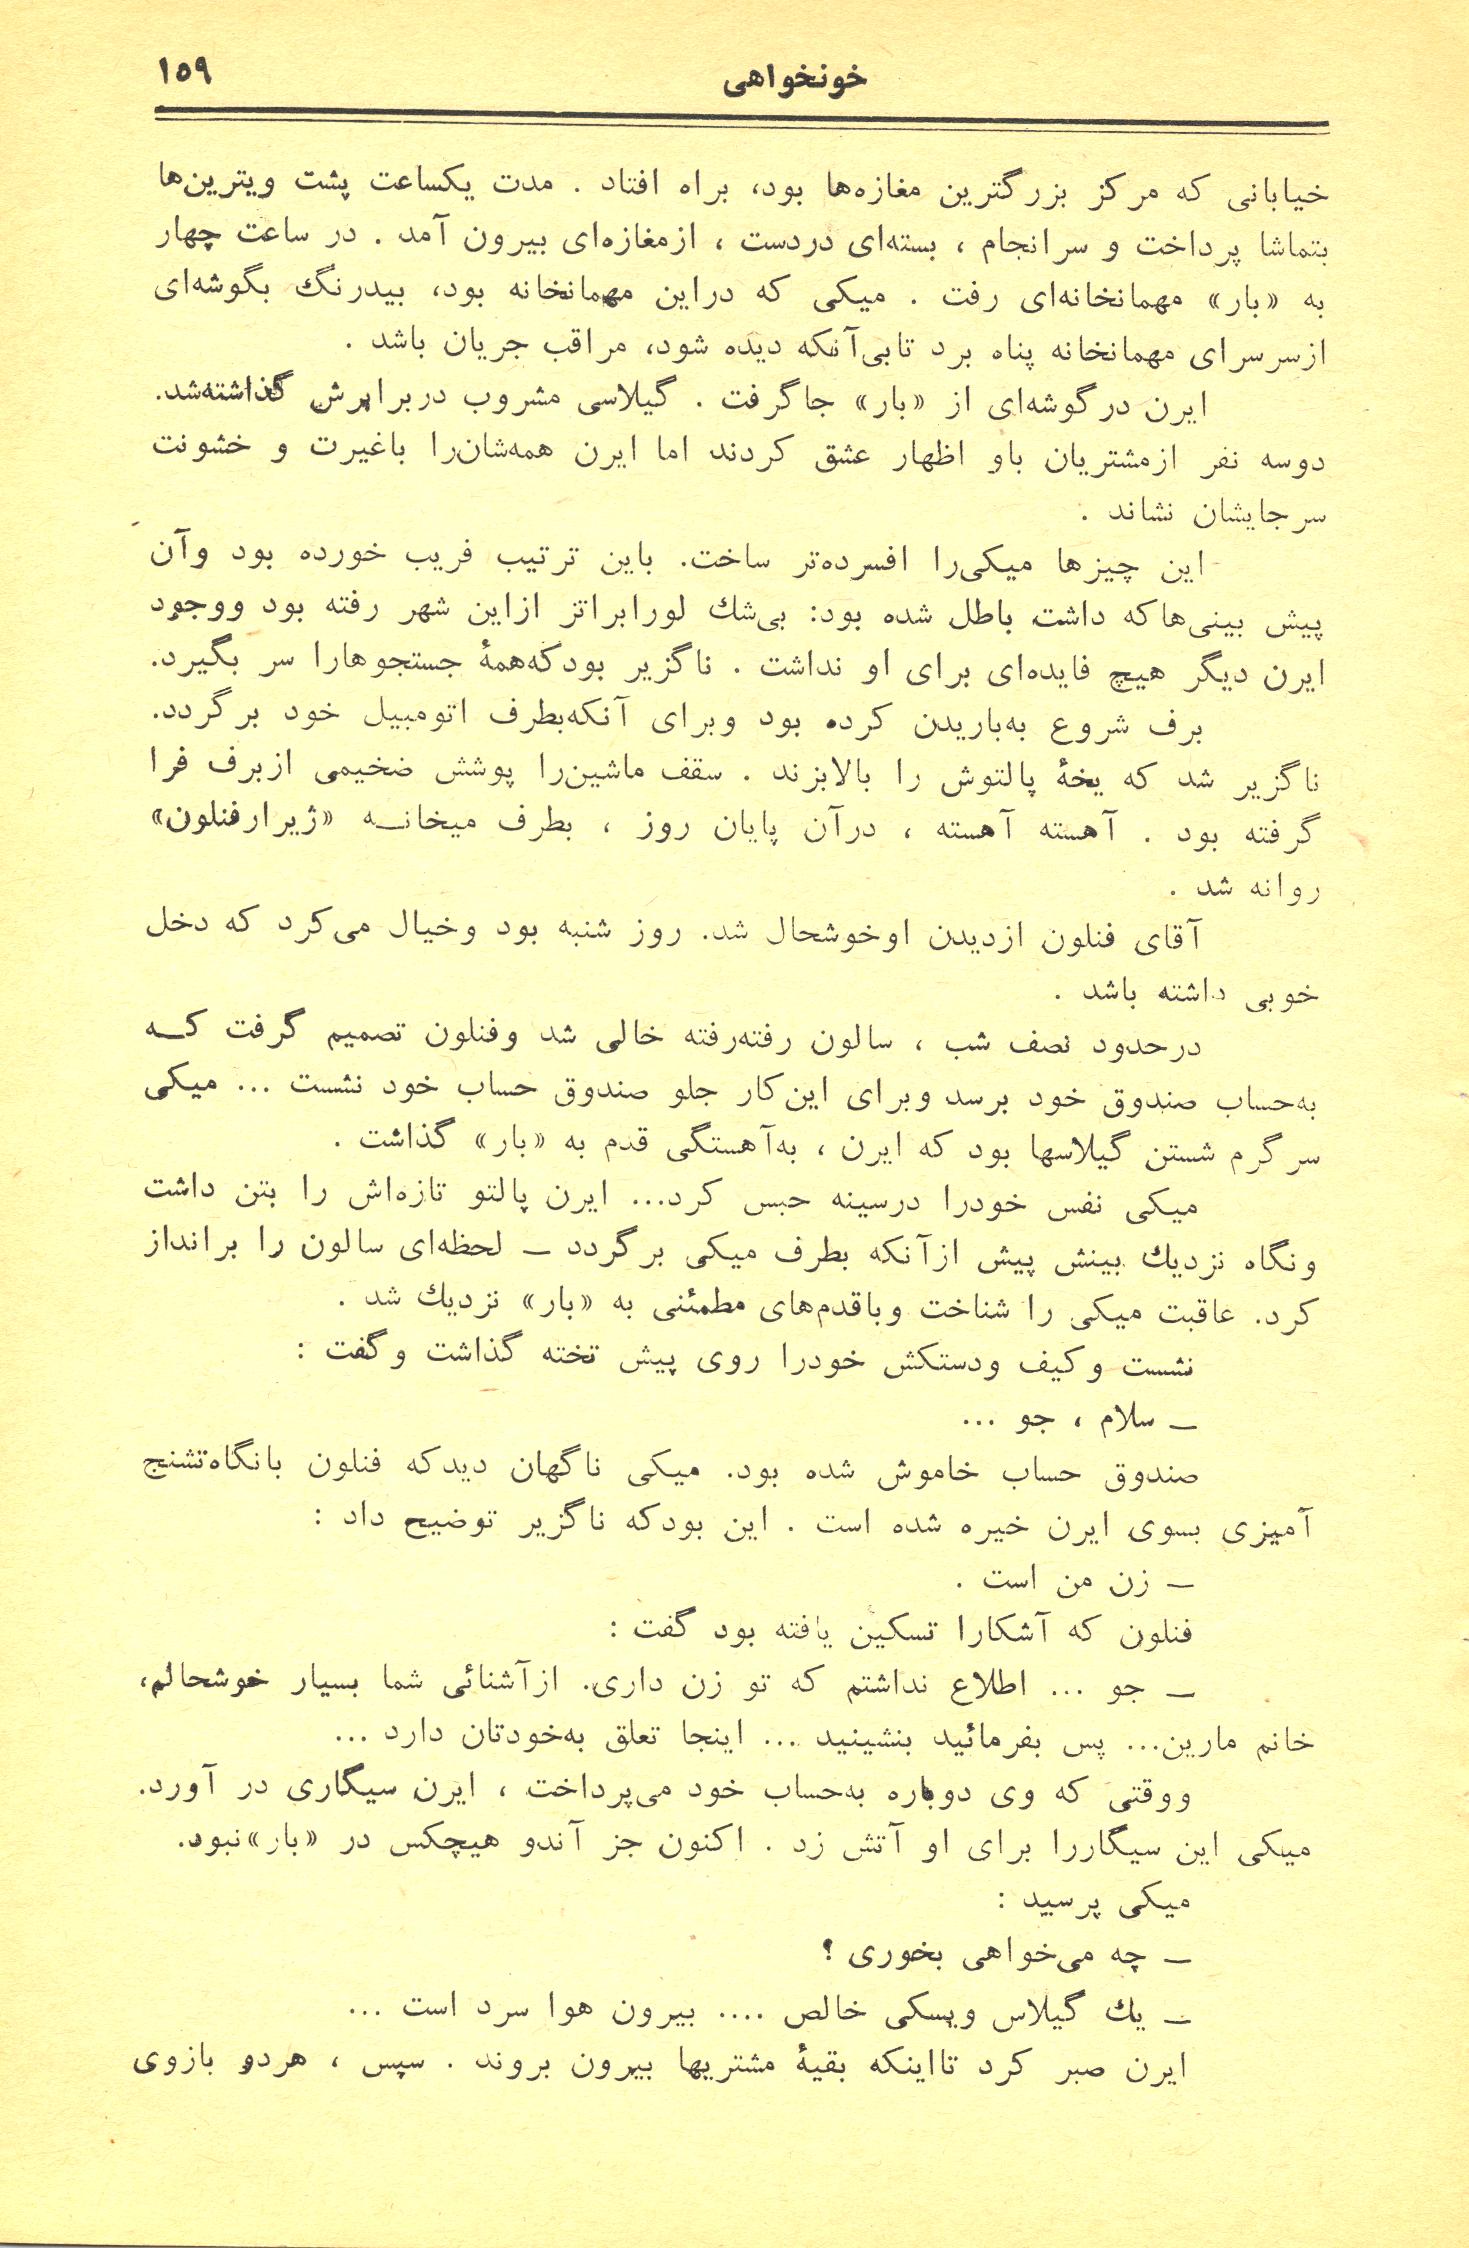 خونخواهی ۱۵۹
خیابانی که مرکز بزرگترین مغازه‌ها بود، براه افتاد . مدت یکساعت پشت ویترین‌ها
بتماشا پرداخت و سرانجام ، بسته‌ای دردست ، ازمغازه‌ای بیرون آمد . در ساعت چهار
به «بار» مهمانخانه‌ای رفت . میکی که دراین مهمانخانه بود، بیدرنگ بگوشه‌ای
ازسرسرای مهمانخانه پناه برد تابی‌آنکه دیده شود، مراقب جریان باشد .
ایرن درگوشه‌ای از «بار» جاگرفت . گیلاسی مشروب دربرابرش گذاشته‌شد.
دوسه نفر ازمشتریان باو اظهار عشق کردند اما ایرن همه‌شان‌را باغیرت و خشونت
سرجایشان نشاند .
این چیزها میکی‌را افسرده‌تر ساخت. باین ترتیب فریب خورده بود وآن
پیش بینی‌هاکه داشت باطل شده بود: بی‌شك لورابراتز ازاین شهر رفته بود ووجود
ایرن دیگر هیچ فایده‌ای برای او نداشت . ناگزیر بودکه‌همهٔ جستجوهارا سر بگیرد.
برف شروع به‌باریدن کرده بود وبرای آنکه‌بطرف اتومبیل خود برگردد.
ناگزیر شد که یخهٔ پالتوش را بالابزند . سقف ماشین‌را پوشش ضخیمی ازبرف فرا
گرفته بود . آهسته آهسته ، درآن پایان روز ، بطرف میخانـه «ژیرارفنلون»
روانه شد .
آقای فنلون ازدیدن اوخوشحال شد. روز شنبه بود وخیال می‌کرد که دخل
خوبی داشته باشد .
درحدود نصف شب ، سالون رفته‌رفته خالی شد وفنلون تصمیم گرفت کـه
به‌حساب صندوق خود برسد وبرای این‌کار جلو صندوق حساب خود نشست ... میکی
سرگرم شستن گیلاسها بود که ایرن ، به‌آهستگی قدم به «بار» گذاشت .
میکی نفس خودرا درسینه حبس کرد... ایرن پالتو تازه‌اش را بتن داشت
ونگاه نزدیك بینش پیش ازآنکه بطرف میکی برگردد ــ لحظه‌ای سالون را برانداز
کرد. عاقبت میکی را شناخت وباقدم‌های مطمئنی به «بار» نزدیك شد .
نشست وکیف ودستکش خودرا روی پیش تخته گذاشت وگفت :
ــ سلام ، جو ...
صندوق حساب خاموش شده بود. میکی ناگهان دیدکه فنلون بانگاه‌تشنج
آمیزی بسوی ایرن خیره شده است . این بودکه ناگزیر توضیح داد :
ــ زن من است .
فنلون که آشکارا تسکین یافته بود گفت :
ــ جو ... اطلاع نداشتم که تو زن داری. ازآشنائی شما بسیار خوشحالم،
خانم مارین... پس بفرمائید بنشینید ... اینجا تعلق به‌خودتان دارد ...
ووقتی که وی دوباره به‌حساب خود می‌پرداخت ، ایرن سیگاری در آورد.
میکی این سیگاررا برای او آتش زد . اکنون جز آندو هیچکس در «بار»نبود.
میکی پرسید :
ــ چه می‌خواهی بخوری ؟
ــ یك گیلاس ویسکی خالص .... بیرون هوا سرد است ...
ایرن صبر کرد تااینکه بقیهٔ مشتریها بیرون بروند . سپس ، هردو بازوی